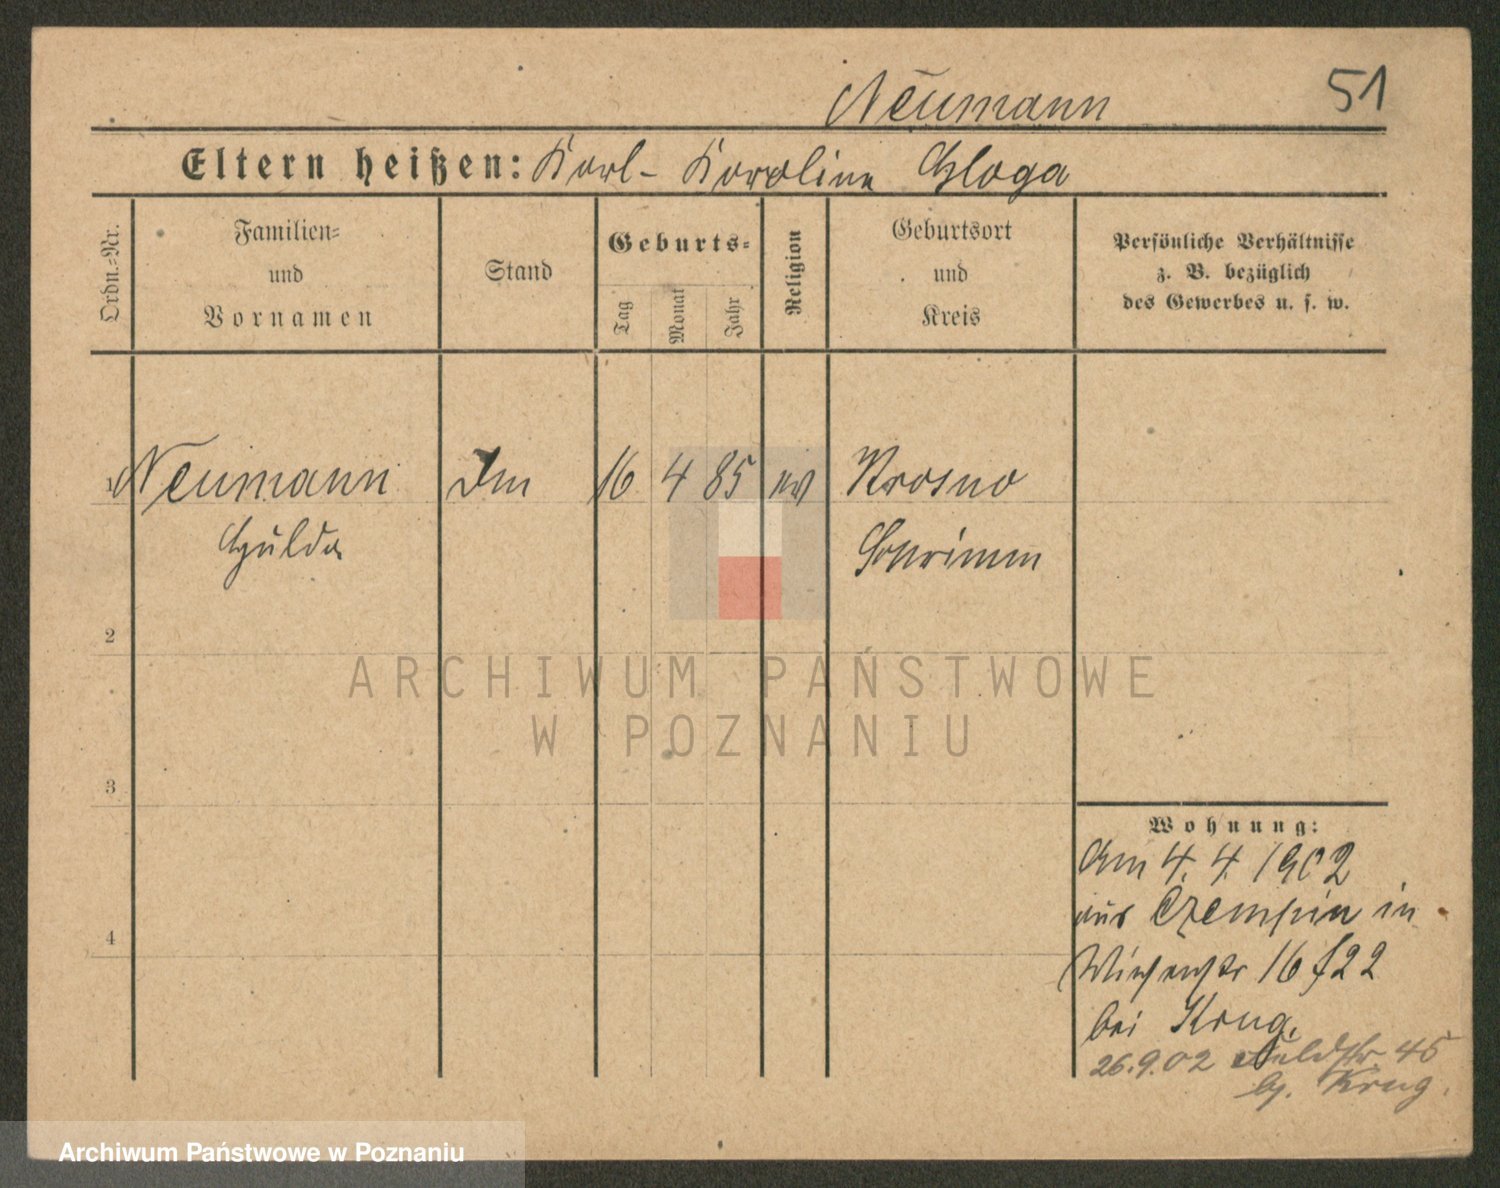 Neumann
51
Eltern heißen: Karl - Karoline Gloga
Ordn.-Nr.
Familien-
und
Vornamen
Stand
Geburts-
Tag
Monat
Jahr
Religion
Geburtsort
und
Kreis
Persönliche Verhältnisse
z. B. bezüglich
des Gewerbes u. s. w.
1 Neumann 16 4 85 ev Krosno
Hulda Schrimm
2
3
4
Wohnung:
Am 4. 4. 1902
aus Czempin in
16 22
bei Krug.
26.9.02 45
b/. Krug.
ARCHIWUM PAŃSTWOWE
W POZNANIU
Archiwum Państwowe w Poznaniu